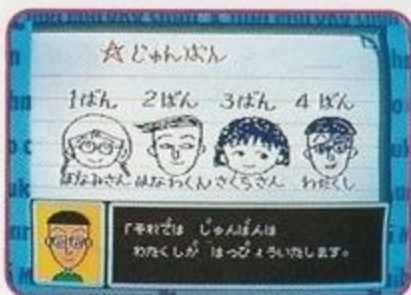 ☆じゅんばん
1ばん 2ばん 3ばん 4ばん
はなわくん さくらさん わたくし
「それでは じゅんばんは
わたくしが はっぴょういたします。